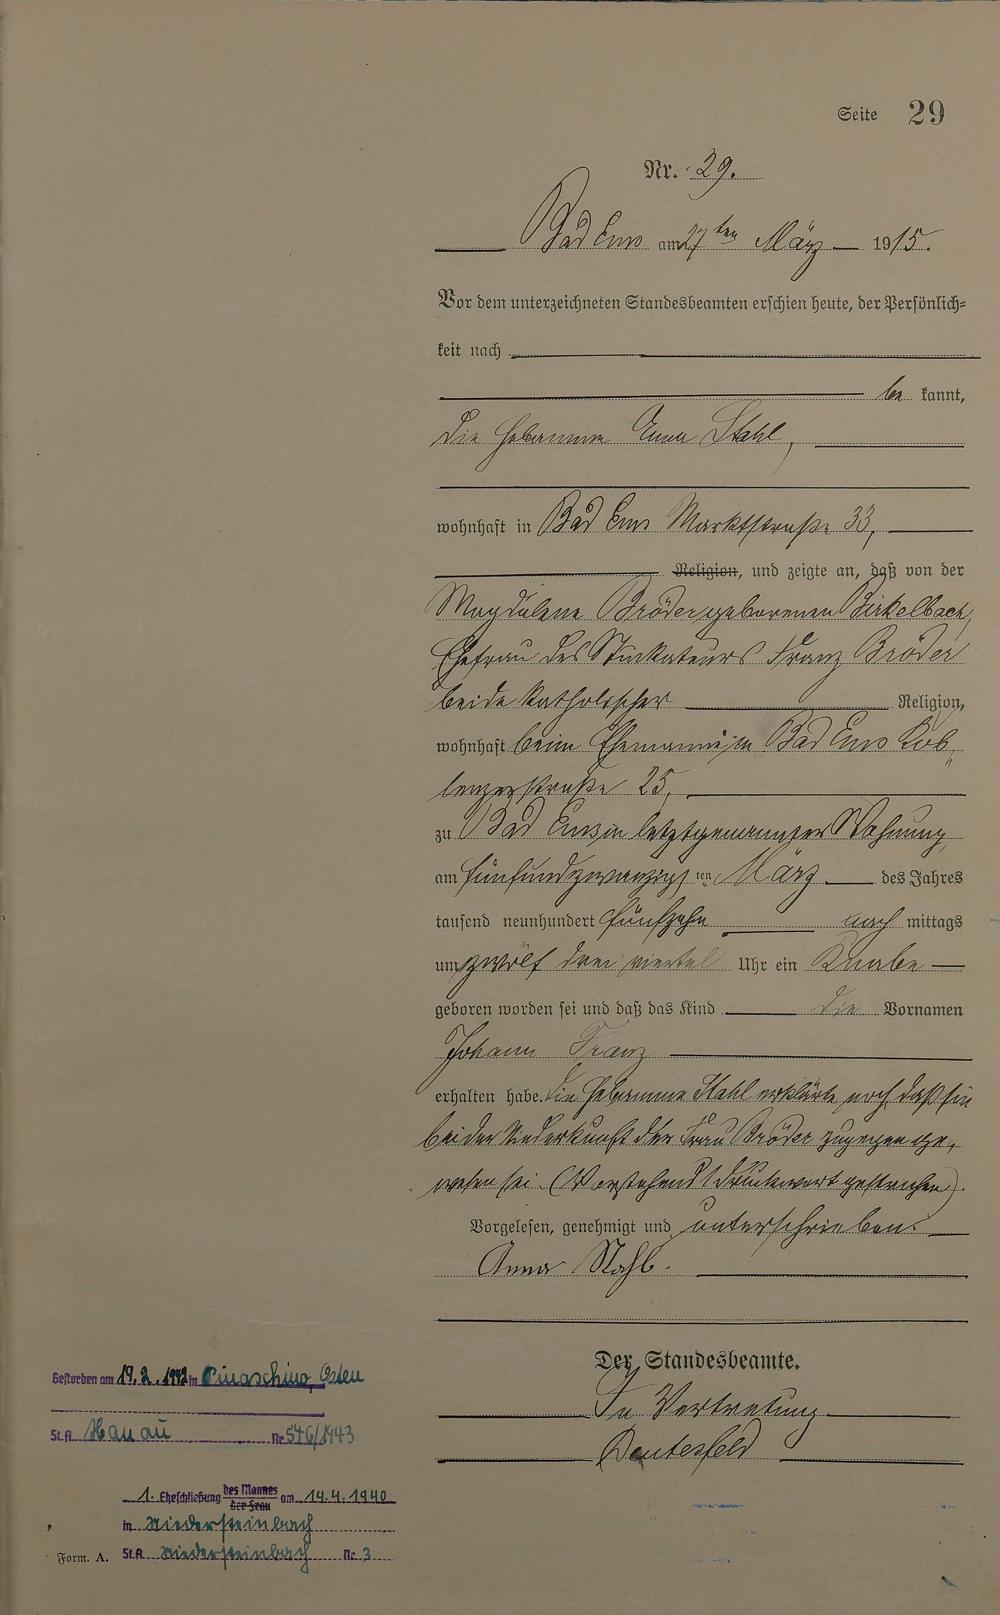 Seite 29
Nr. 29.
Bad Ems am 27ten März 1915.
Vor dem unterzeichneten Standesbeamten erschien heute, der Persönlich=
keit nach
be kannt,
die Hebamme Anna Stahl,
wohnhaft in Bad Ems Marktstraße 33,
Religion, und zeigte an, daß von der
Magdalena Bröder geborenen Birkelbach,
Ehefrau des Stuckateurs Franz Bröder
beide katholischer Religion,
wohnhaft beim Ehemanne in Bad Ems Cob„
lenzerstraße 25,
zu Bad Ems in letztgenannter Wohnung
am fünfundzwanzigsten März des Jahres
tausend neunhundert fünfzehn nach mittags
um zwölf drei viertel Uhr ein Knabe
geboren worden sei und daß das Kind die Vornamen
Johann Franz
erhalten habe. Die Hebamme Stahl erklärte noch, daß sie
bei der Niederkunft der Frau Bröder zugegen ge„
wesen sei. (Vorstehend 1 Druckwort gestrichen).
Vorgelesen, genehmigt und unterschrieben.
Anna Stahl.
Der Standesbeamte.
In Vertretung
Gestorben am 19.2.1942 in Osten
St.A. Hanau Nr. 546/1943
1. Eheschließung des Mannes am 14.4.1940
der Frau
in Niedersteinbach
Form. A. St.A. Niedersteinbach Nr. 3